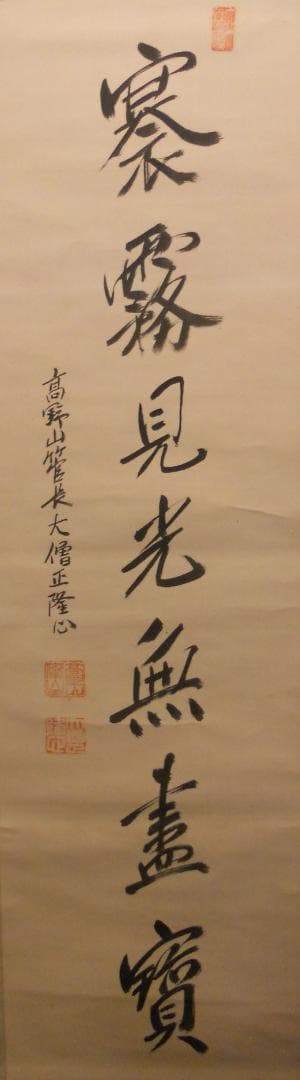 褰霧見光無盡寶
高野山管長大僧正隆心